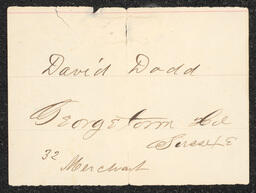 David Dodd
Georgetown Del
Sussex
32
Merchant